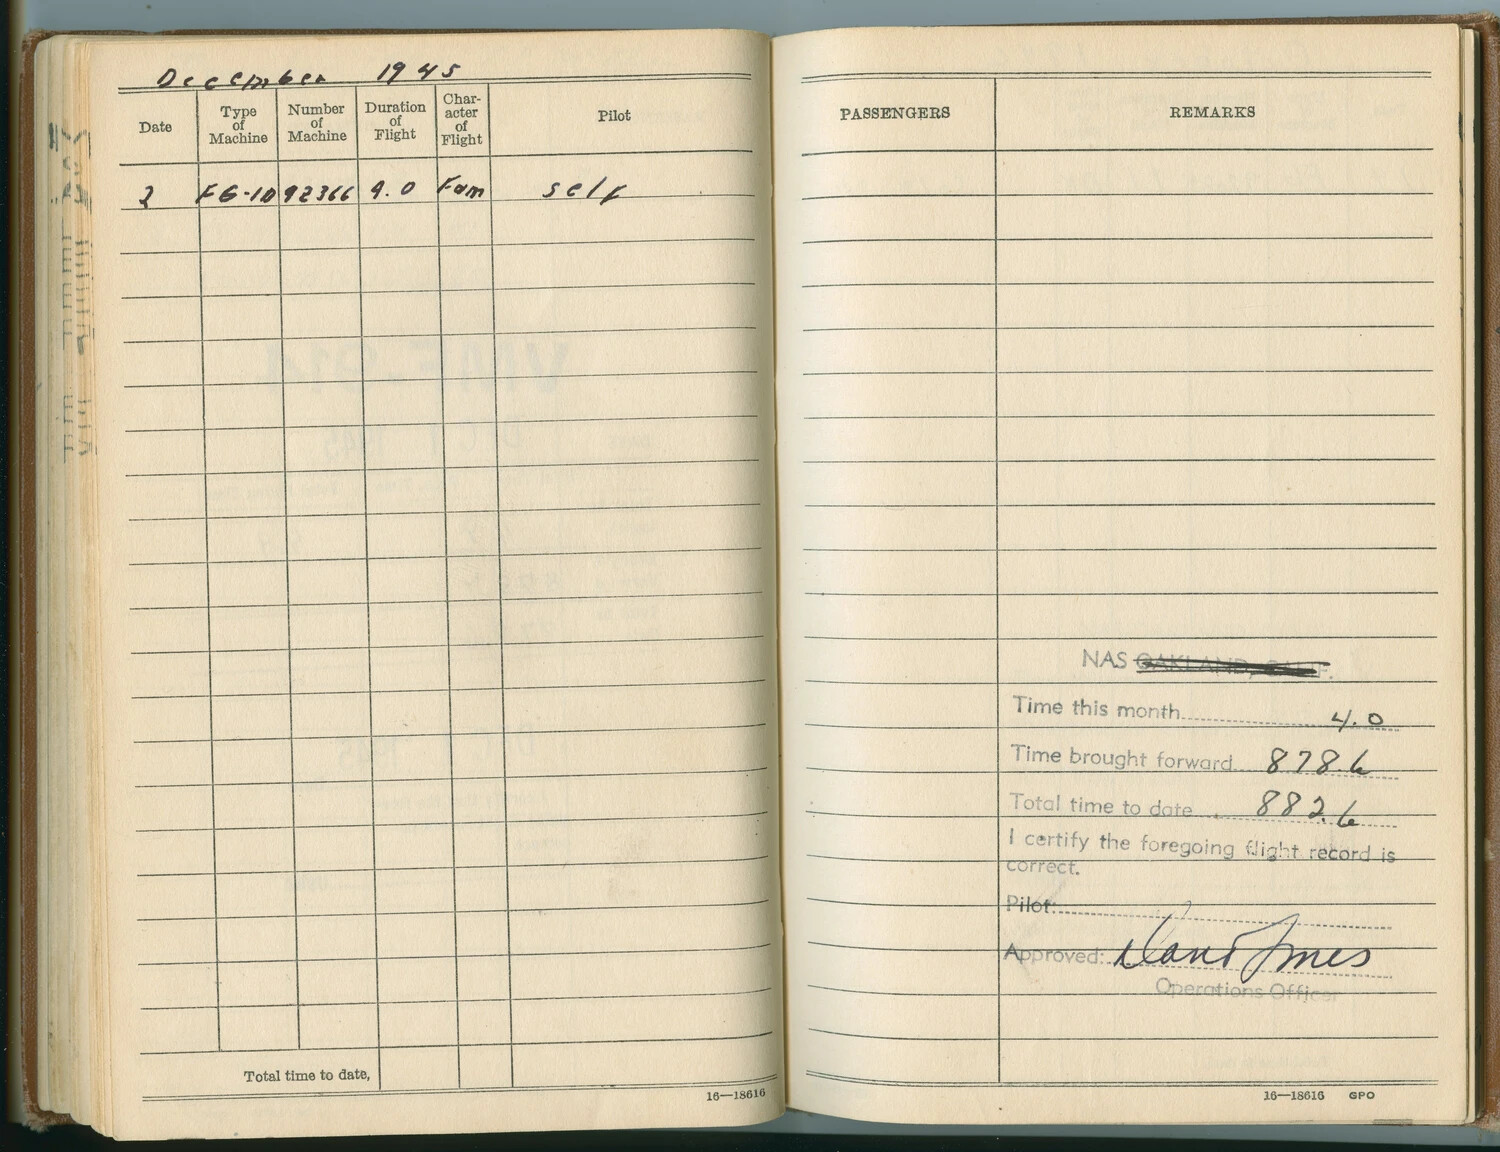 December 1945
Date Type of Machine Number of Machine Duration of Flight Char-acter of Flight Pilot
2 FG-1D 92366 4.0 Fam self
Total time to date,
16—18616
PASSENGERS REMARKS
NAS OAKLAND, CALIF.
Time this month 4.0
Time brought forward 878.6
Total time to date 882.6
I certify the foregoing flight record is
correct.
Pilot:
Approved:
Operations Officer
16—18616 GPO
VMF-914
DEC 1 1945